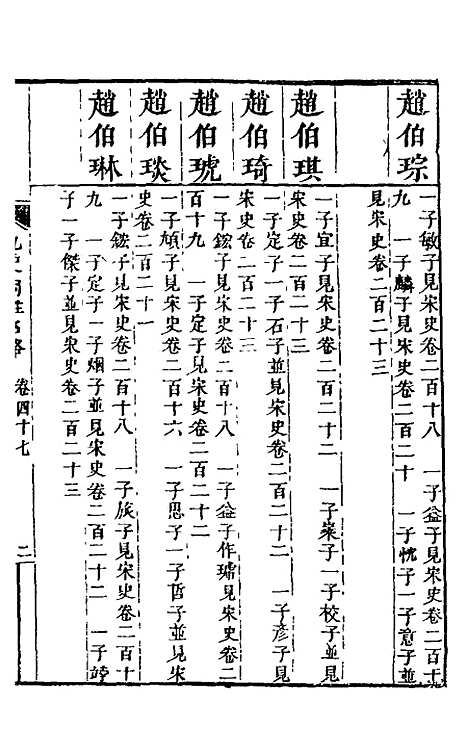 趙伯琮
一子敏子見宋史卷二百十八　一子益子見宋史卷二百十
九　一子麟子見宋史卷二百二十　一子忱子一子意子並
見宋史卷二百二十三
趙伯琪
一子宜子見宋史卷二百二十二　一子寀子一子校子並見
宋史卷二百二十三
趙伯琦
一子定子一子石子並見宋史卷二百二十二　一子彥子見
宋史卷二百二十三
趙伯琥
一子鋐子見宋史卷二百十八　一子益子作璛見宋史卷二
百十九　一子定子見宋史卷二百二十二
趙伯琰
一子頏子見宋史卷二百十六　一子思子一子哲子並見宋
史卷二百二十一
趙伯琳
一子鋐子見宋史卷二百十八　一子旅子見宋史卷二百十
九　一子定子一子烟子並見宋史卷二百二十二　一子
子一子傑子並見宋史卷二百二十三
九史同姓名略　卷四十七　二